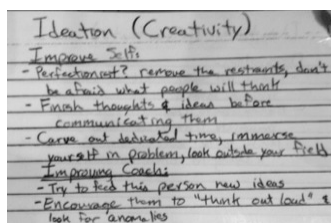 Ideation (Creativity)
Improve Self:
- Perfectionist? remove the restraints, don't
be afraid what people will think
- Finish thoughts & ideas before
communicating them
- Carve out dedicated time, immerse
yourself in problem, look outside your field
Improving Coach:
- Try to feed this person new ideas
- Encourage them to "think out loud" &
look for anomalies